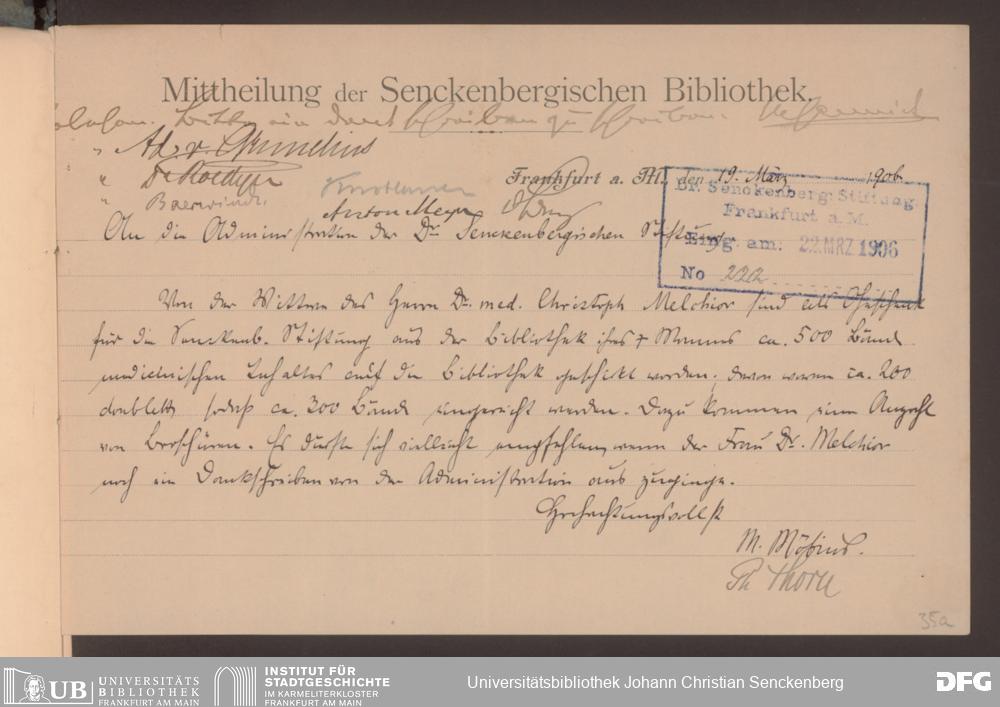 Mittheilung der Senckenbergischen Bibliothek.
gelesen. Bitte ein Dankschreiben zu schreiben.
" Ad. v. Grunelius
" Dr Roediger
" Baerwindt.
Anton Meyer
Frankfurt a. M., den 19. März 1906.
Dr. Senckenberg. Stiftung
Frankfurt a. M.
Eing. am: 22. MRZ 1906
No 222
An die Administration der Dr. Senckenbergischen Stiftung
Von der Wittwe des Herrn Dr. med. Christoph Melchior sind als Geschenk
für die Senckenb. Stiftung aus der Bibliothek ihres † Mannes ca. 500 Bände
medicinischen Inhaltes auf die Bibliothek geschickt worden; davon waren ca. 200
doublett, sodaß ca. 300 Bände eingereiht werden. Dazu kommen eine Anzahl
von Broschüren. Es dürfte sich vielleicht empfehlen, wenn der Frau Dr. Melchior
noch ein Dankschreiben von der Administration aus zuginge.
Hochachtungsvollst
M. Möbius.
35a
UB UNIVERSITÄTS
BIBLIOTHEK
FRANKFURT AM MAIN
INSTITUT FÜR
STADTGESCHICHTE
IM KARMELITERKLOSTER
FRANKFURT AM MAIN
Universitätsbibliothek Johann Christian Senckenberg
DFG